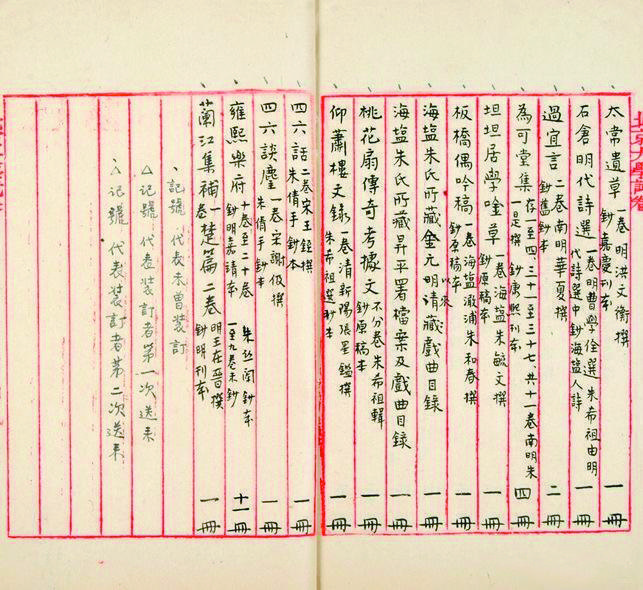 太常遺草 一卷明洪文衡撰 鈔嘉慶刊本 一冊
石倉明代詩選 一卷明曹學佺選朱希祖由明代詩選中鈔海鹽人詩 一冊
過宜言 二卷南明華夏撰 鈔舊鈔本 二冊
為可堂集 存一至四、三十一至三十七、共十一卷南明朱一是撰 鈔康熙刊本 四冊
坦坦居學唫草 一卷海盐朱毓文撰 鈔原稿本 一冊
板橋偶吟稿 一卷海盐澉浦朱和春撰 鈔原稿本 一冊
海盐朱氏所藏金元明清藏戲曲目録 一冊
以來
海盐朱氏所藏昇平署檔案及戲曲目録 一冊
桃花扇傳奇考據文 不分卷朱希祖輯 鈔原稿本 一冊
仰蕭樓文録 一卷清新陽張星鑑撰 朱希祖選鈔本 一冊
四六話 二卷宋王銍撰 朱倩手鈔本 一冊
四六談麈 一卷宋謝伋撰 朱倩手鈔本 一冊
雍熙樂府 十卷至二十卷 一至九卷未鈔 鈔明嘉靖本 十一冊
蘭江集補一卷 楚篇二卷 明王在晉撰 鈔明刊本 一冊
、記號 代表未曾裝訂
△记號 代表裝訂者第一次送来
記號 代表裝訂者第二次送来